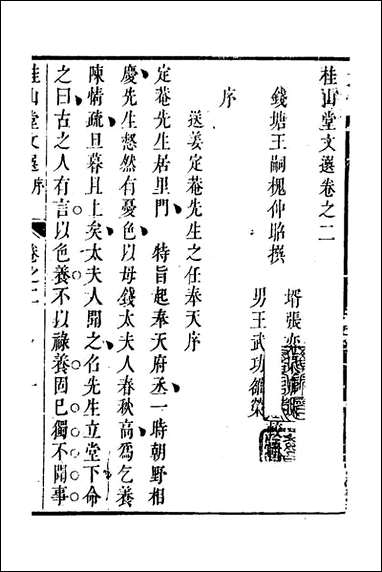 桂山堂文選卷之二
錢塘王嗣槐仲昭撰
壻張
男王武功
序
送姜定菴先生之任奉天序
定菴先生居里門 特旨起奉天府丞一時朝野相
慶先生愁然有憂色以母錢太夫人春秋高爲乞養
陳情疏旦暮且上矣太夫人聞之名先生立堂下命
之曰古之人有言以色養不以祿養固已獨不聞事
桂山堂文選 序 卷之二 一